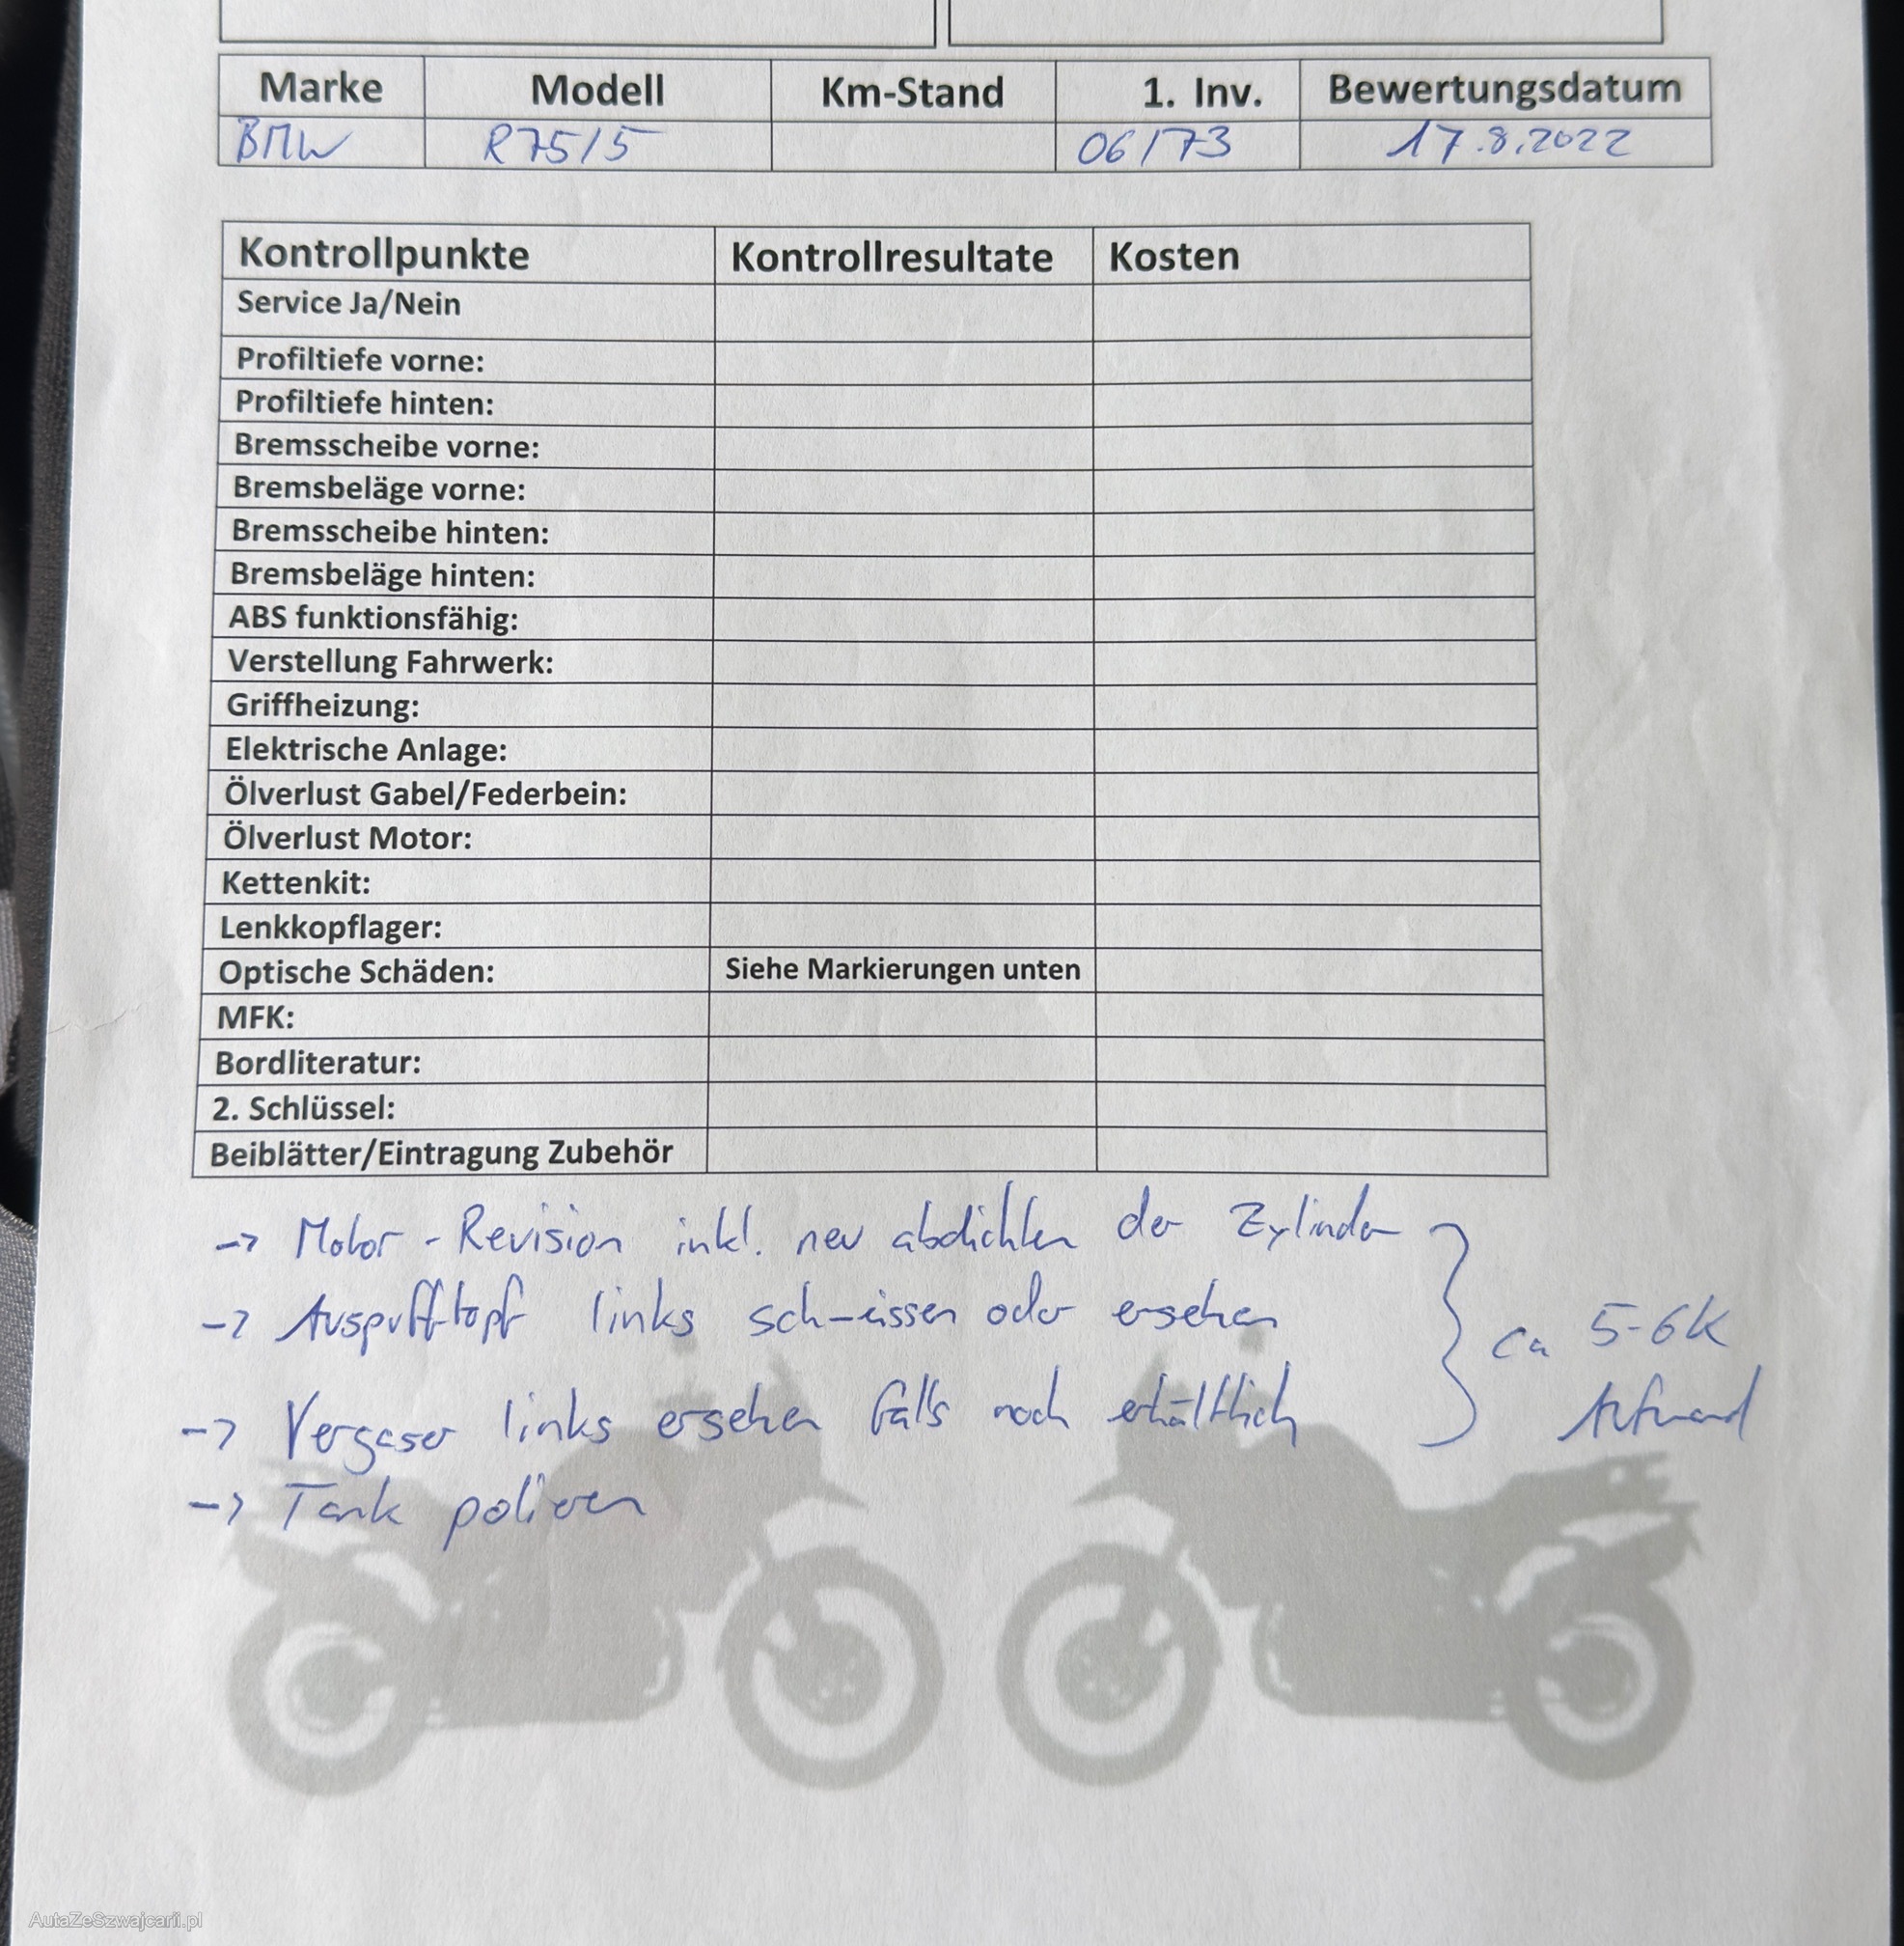 Marke Modell Km-Stand 1. Inv. Bewertungsdatum
BMW R75/5 06/73 17.8.2022
Kontrollpunkte Kontrollresultate Kosten
Service Ja/Nein
Profiltiefe vorne:
Profiltiefe hinten:
Bremsscheibe vorne:
Bremsbeläge vorne:
Bremsscheibe hinten:
Bremsbeläge hinten:
ABS funktionsfähig:
Verstellung Fahrwerk:
Griffheizung:
Elektrische Anlage:
Ölverlust Gabel/Federbein:
Ölverlust Motor:
Kettenkit:
Lenkkopflager:
Optische Schäden: Siehe Markierungen unten
MFK:
Bordliteratur:
2. Schlüssel:
Beiblätter/Eintragung Zubehör
-> Motor-Revision inkl. neu abdichten der Zylinder
-> Auspufftopf links schweissen oder ersetzen
ca 5-6k
-> Vergaser links ersetzen falls noch erhältlich
Aufwand
-> Tank polieren
AutaZeSzwajcarii.pl